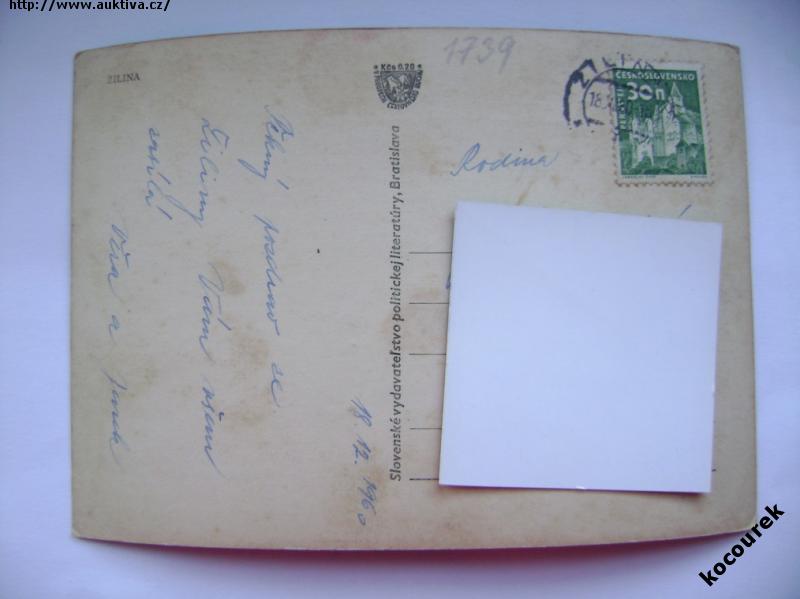 http://www.auktiva.cz/
ŽILINA
Kčs 0.20
1739
ČESKOSLOVENSKO
30 h
Pěkný pozdrav ze
Žiliny Vám všem
zasílá
Věra a
18. 12. 1960
Slovenské vydavateľstvo politickej literatúry, Bratislava
Rodina
kocourek